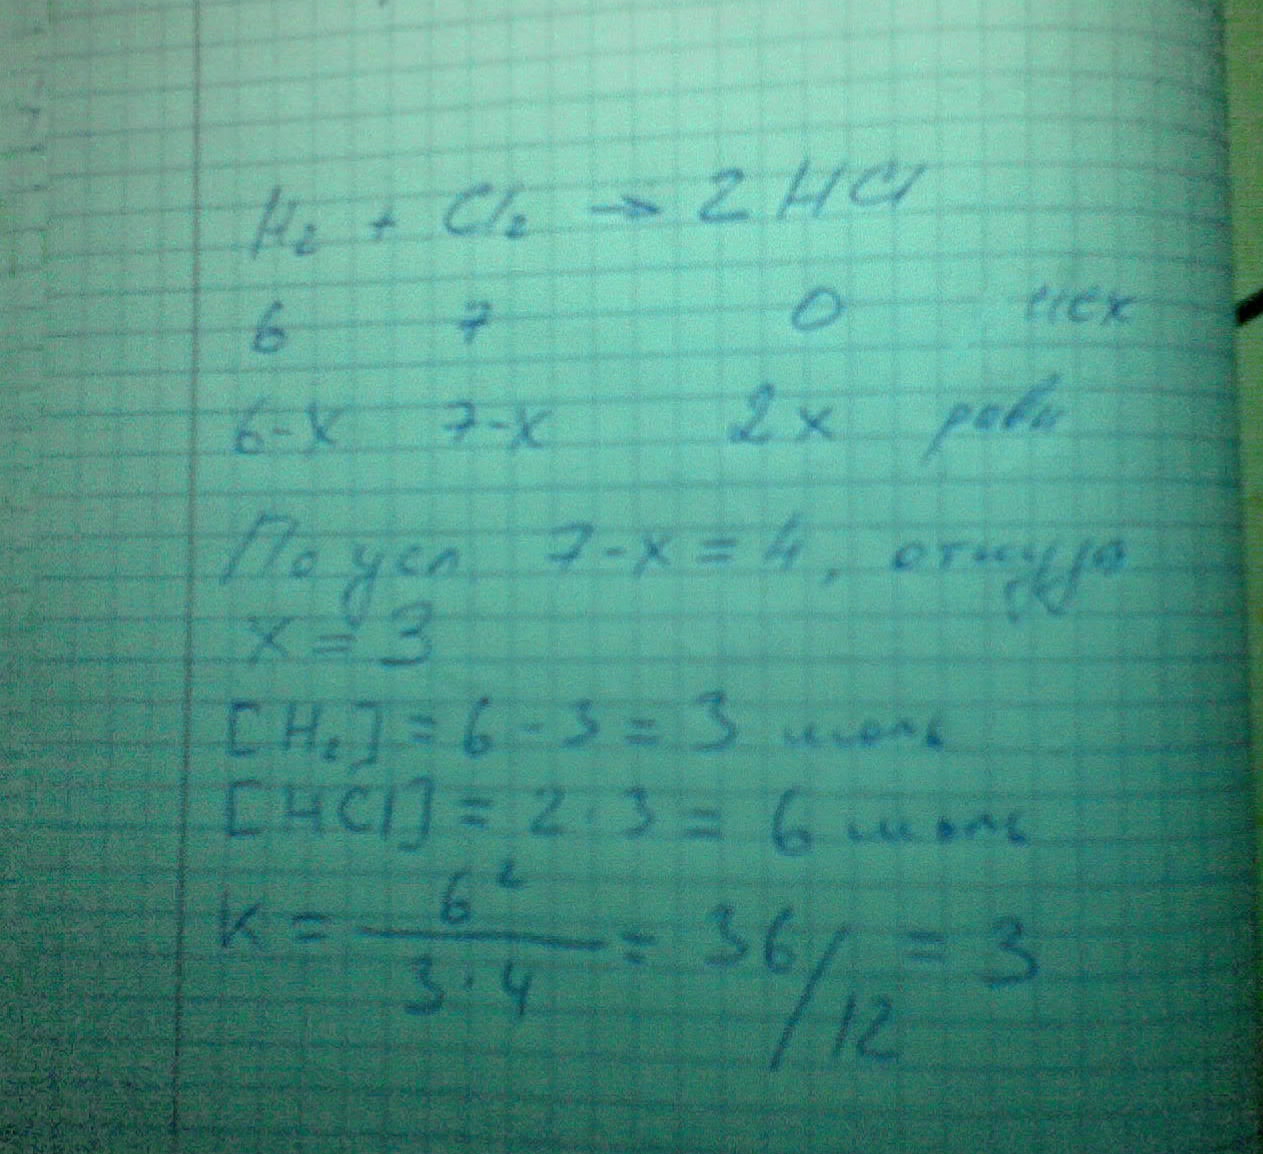 H₂ + Cl₂ → 2 HCl
6 7 0 исх
6-x 7-x 2x равн
По усл 7-x = 4, откуда
x = 3
[H₂] = 6 - 3 = 3 моль
[HCl] = 2·3 = 6 моль
K = 6²/3·4 = 36/12 = 3